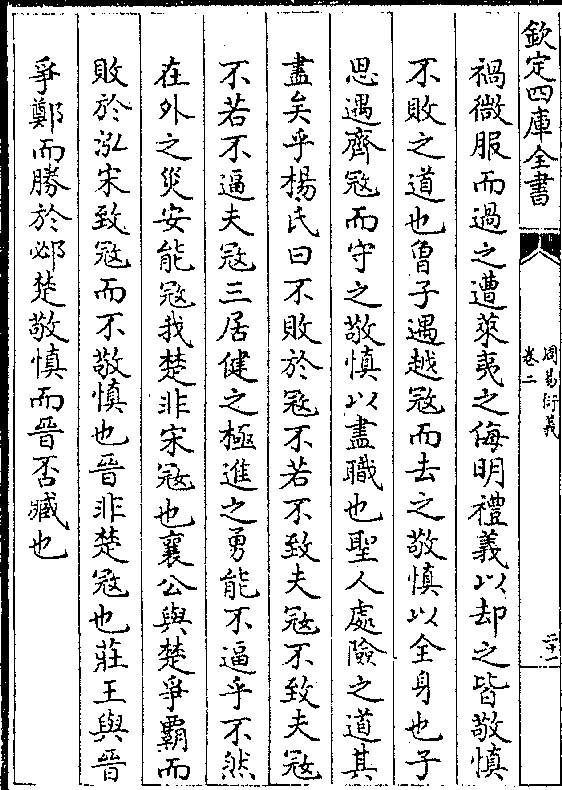 欽定四庫全書
周易衍義
卷二
二十一
禍微服而過之遭萊夷之侮明禮義以却之皆敬慎
不敗之道也曾子遇越寇而去之敬慎以全身也子
思遇齊寇而守之敬慎以盡職也聖人處險之道其
盡矣乎楊氏曰不敗於寇不若不致夫寇不致夫寇
不若不逼夫寇三居健之極進之勇能不逼乎不然
在外之災安能寇我楚非宋寇也襄公與楚爭霸而
敗於泓宋致寇而不敬慎也晉非楚寇也莊王與晉
爭鄭而勝於邲楚敬慎而晉否臧也